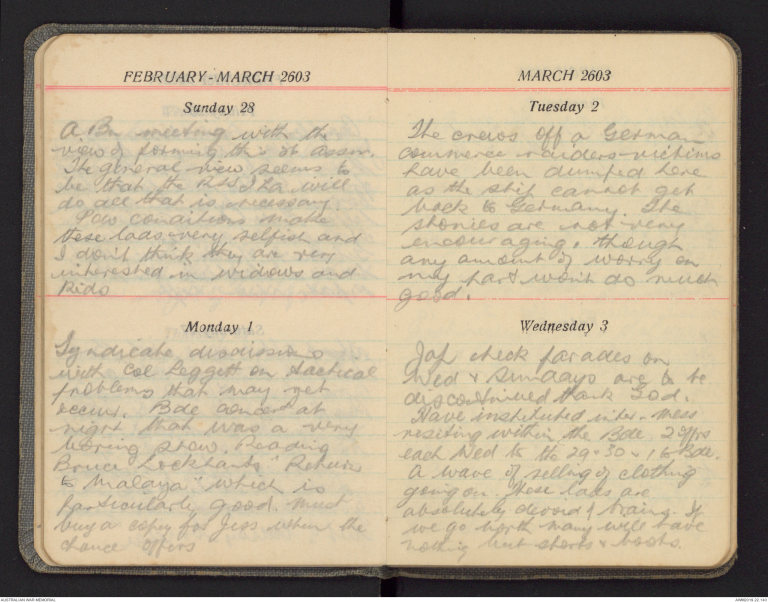 FEBRUARY-MARCH 2603
Sunday 28
A Bn meeting with the
view of forming the 2t assn.
The general view seems to
be that the RSSILA will
do all that is necessary
Pow conditions make
these lads very selfish and
I don't think they are very
interested in widows and
kids
Monday 1
Syndicate discussions
with Col Leggett on tactical
problems that may yet
occur. Bde concert at
night that was a very
boring show. Reading
Bruce Lockharts "Return
to Malaya" which is
particularly good. Must
buy a copy for Jess when the
chance offers
MARCH 2603
Tuesday 2
The crews off a German
commerce raiders victims
have been dumped here
as the ship cannot get
back to Germany. The
stories are not very
encouraging. though
any amount of worry on
my part won't do much
good.
Wednesday 3
Jap check parades on
Wed & Sundays are to be
discontinued thank God.
Have instituted inter-mess
visiting within the Bde 2 offrs
each Wed to the 29-30 & 18 Bde.
A wave of selling of clothing
going on. These lads are
absolutely devoid of brains. If
we go north many will have
nothing but shorts & boots.
AUSTRALIAN WAR MEMORIAL